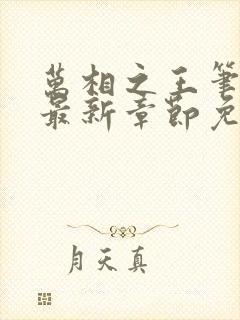 萬相之王筆
最新章節免
月天真